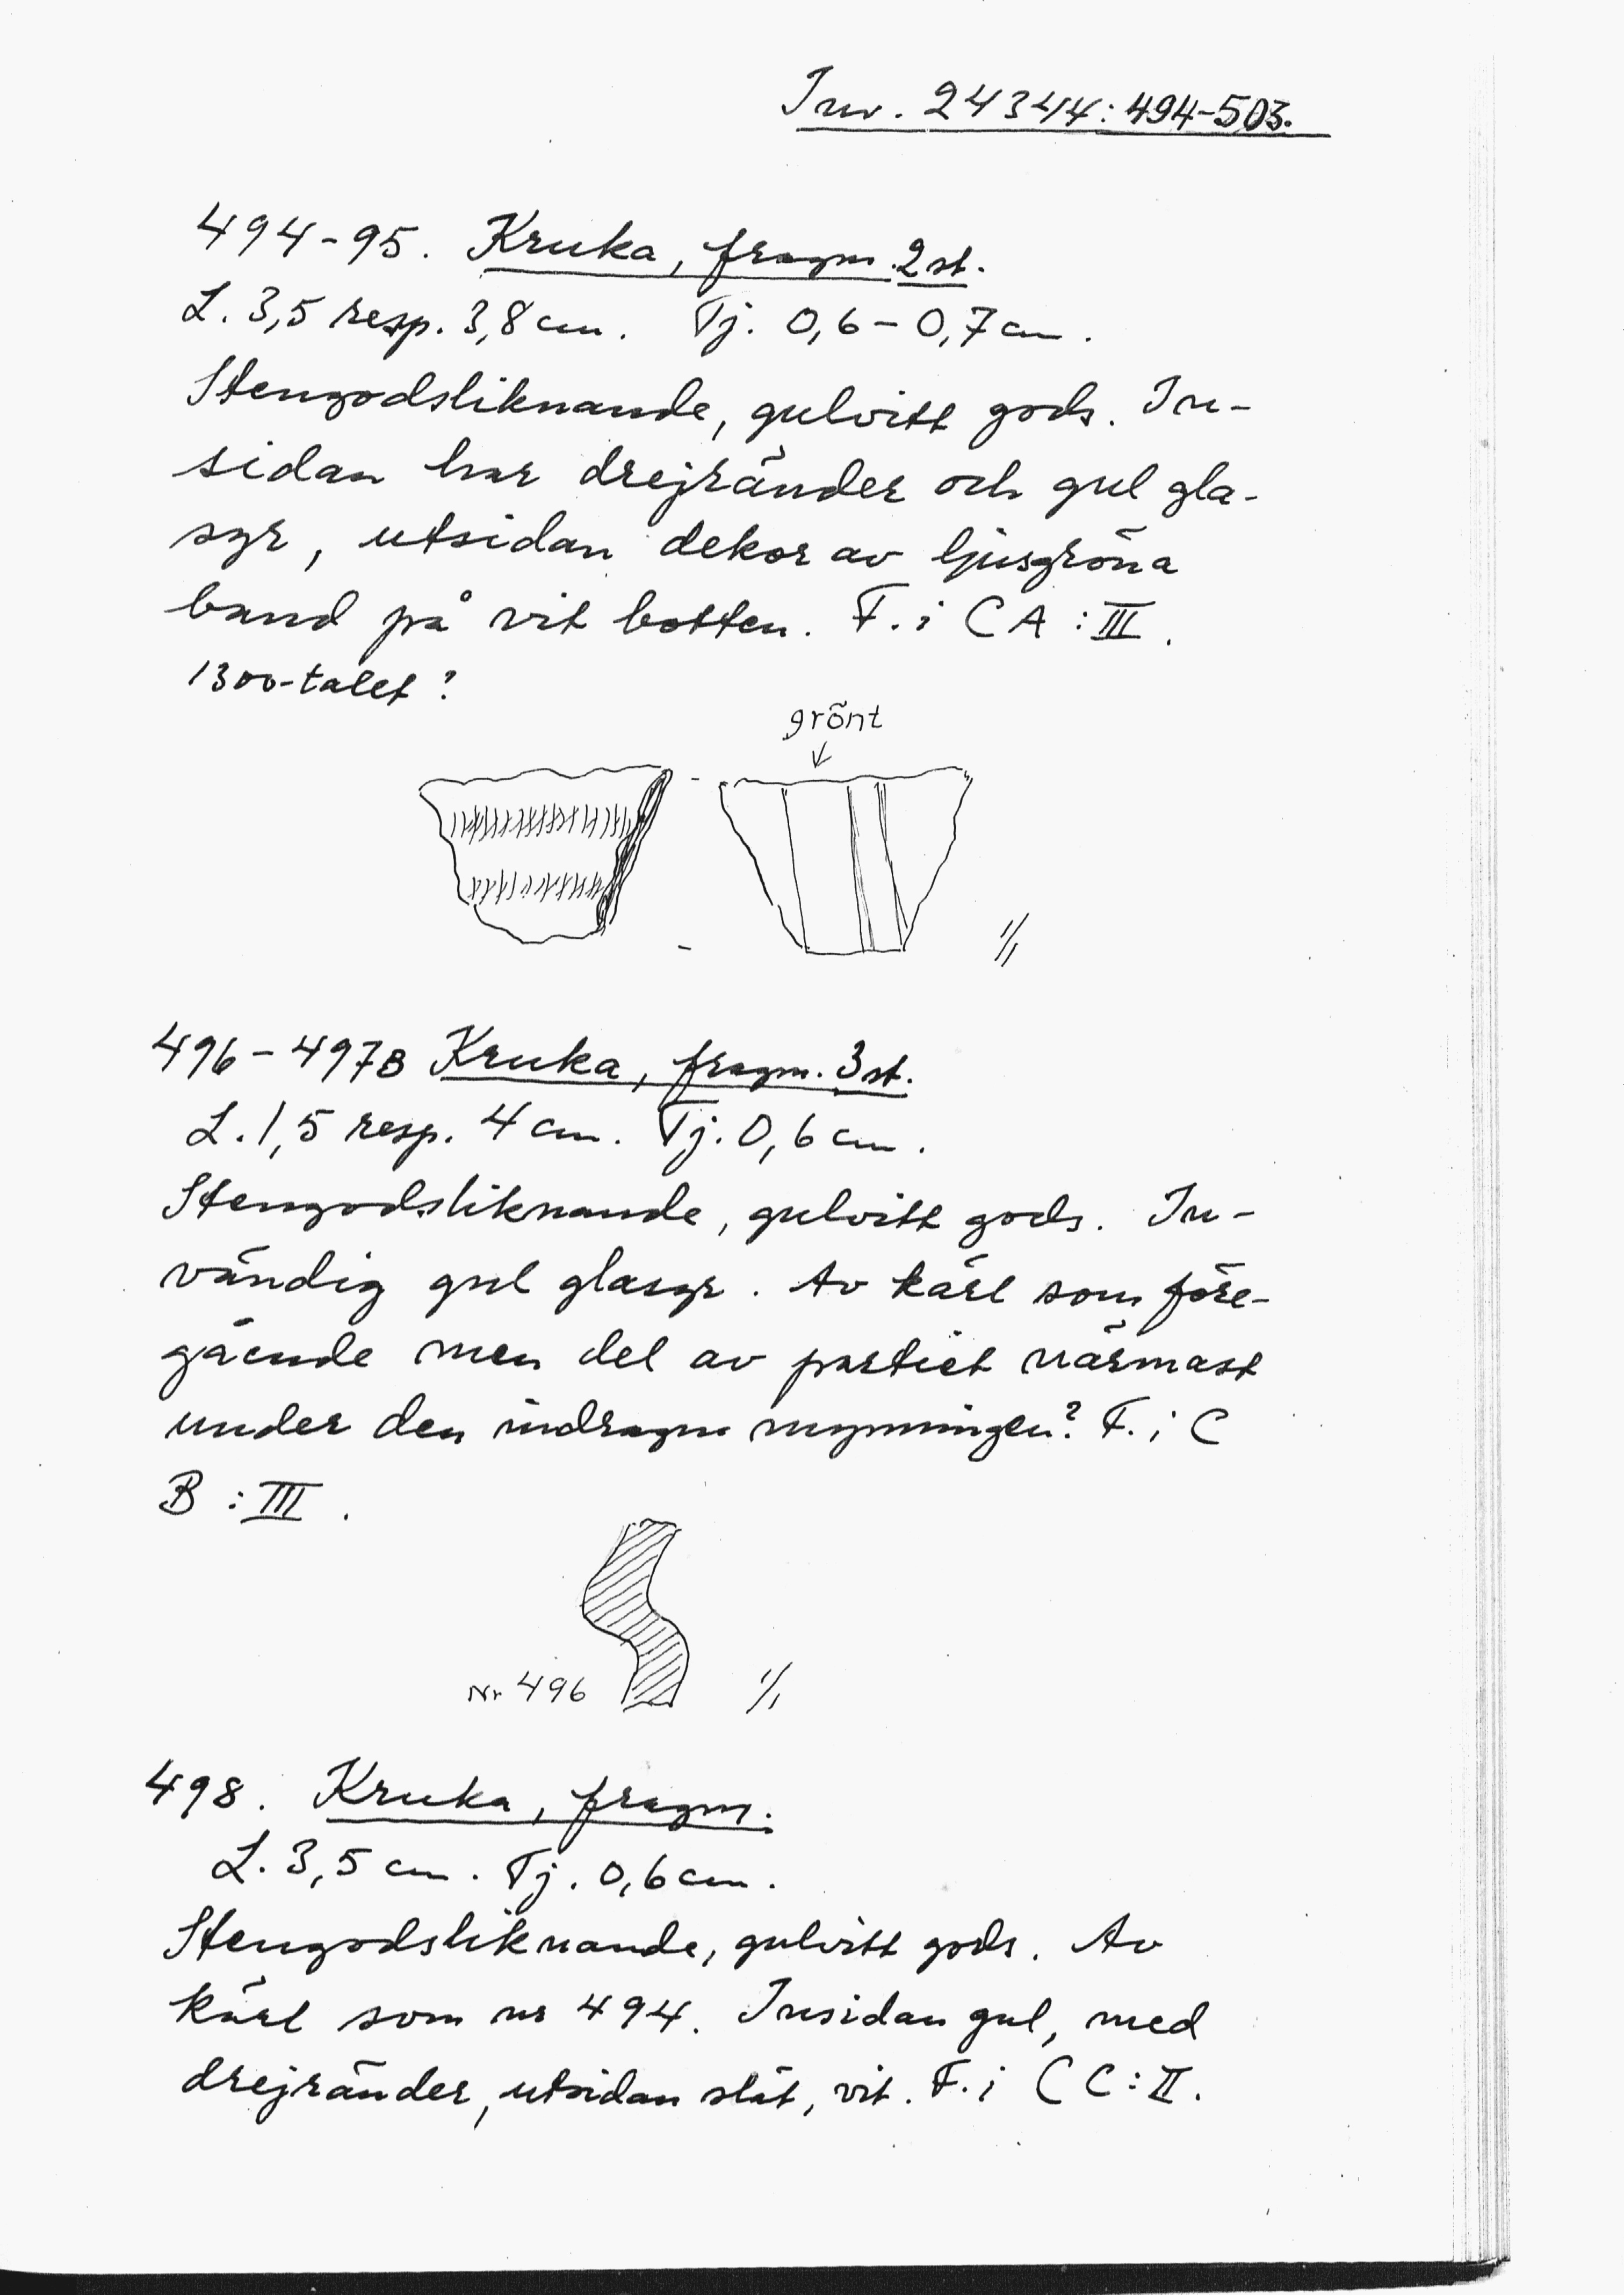 Inv. 24344:494-503.
494-95. Kruka, fragm. 2 st.
L. 3,5 resp. 3,8 cm. Tj. 0,6-0,7 cm.
Stengodsliknande, gulvitt gods. In-
sidan har drejränder och gul gla-
syr, utsidan dekor av ljusgröna
band på vit botten. F. i CA:III.
1300-talet?
grönt
1/1
496-497B Kruka, fragm. 3 st.
L. 1,5 resp. 4 cm. Tj. 0,6 cm.
Stengodsliknande, gulvitt gods. In-
vändig gul glasyr. Av kärl som före-
gående men del av partiet närmast
under den indragna mynningen? F. i C
B:III.
Nr 496
1/1
498. Kruka, fragm.
L. 3,5 cm. Tj. 0,6 cm.
Stengodsliknande, gulvitt gods. Av
kärl som nr 494. Insidan gul, med
drejränder, utsidan slät, vit. F. i CC:II.